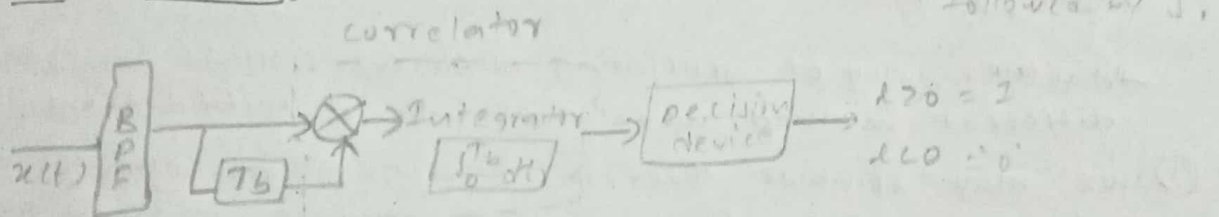 followed by
correlator
x(t)
B
P
F
Tb
Integrator
∫₀^Tb dt
Decision
device
l>0 = 1
l<0 = '0'